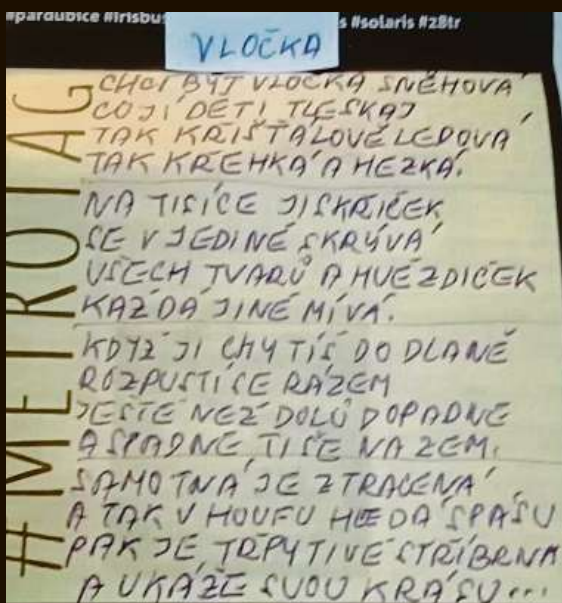 #pardubice #irisbus
s #solaris #28tr
VLOČKA
#METROTAG
CHCI BÝT VLOČKA SNĚHOVÁ
CO JÍ DĚTI TLESKAJ
TAK KŘIŠŤÁLOVĚ LEDOVÁ
TAK KŘEHKÁ A HEZKÁ.
NA TISÍCE JISKŘIČEK
SE V JEDINÉ SKRÝVÁ
VŠECH TVARŮ A HVĚZDIČEK
KAŽDÁ JINÉ MÍVÁ.
KDYŽ JI CHYTÍŠ DO DLANĚ
ROZPUSTÍ SE RÁZEM
JEŠTĚ NEŽ DOLŮ DOPADNE
A SPADNE TIŠE NA ZEM.
SAMOTNÁ JE ZTRACENÁ
A TAK V HOUFU HLEDÁ SPÁSU
PAK JE TŘPYTIVĚ STŘÍBRNÁ
A UKÁŽE SVOU KRÁSU...